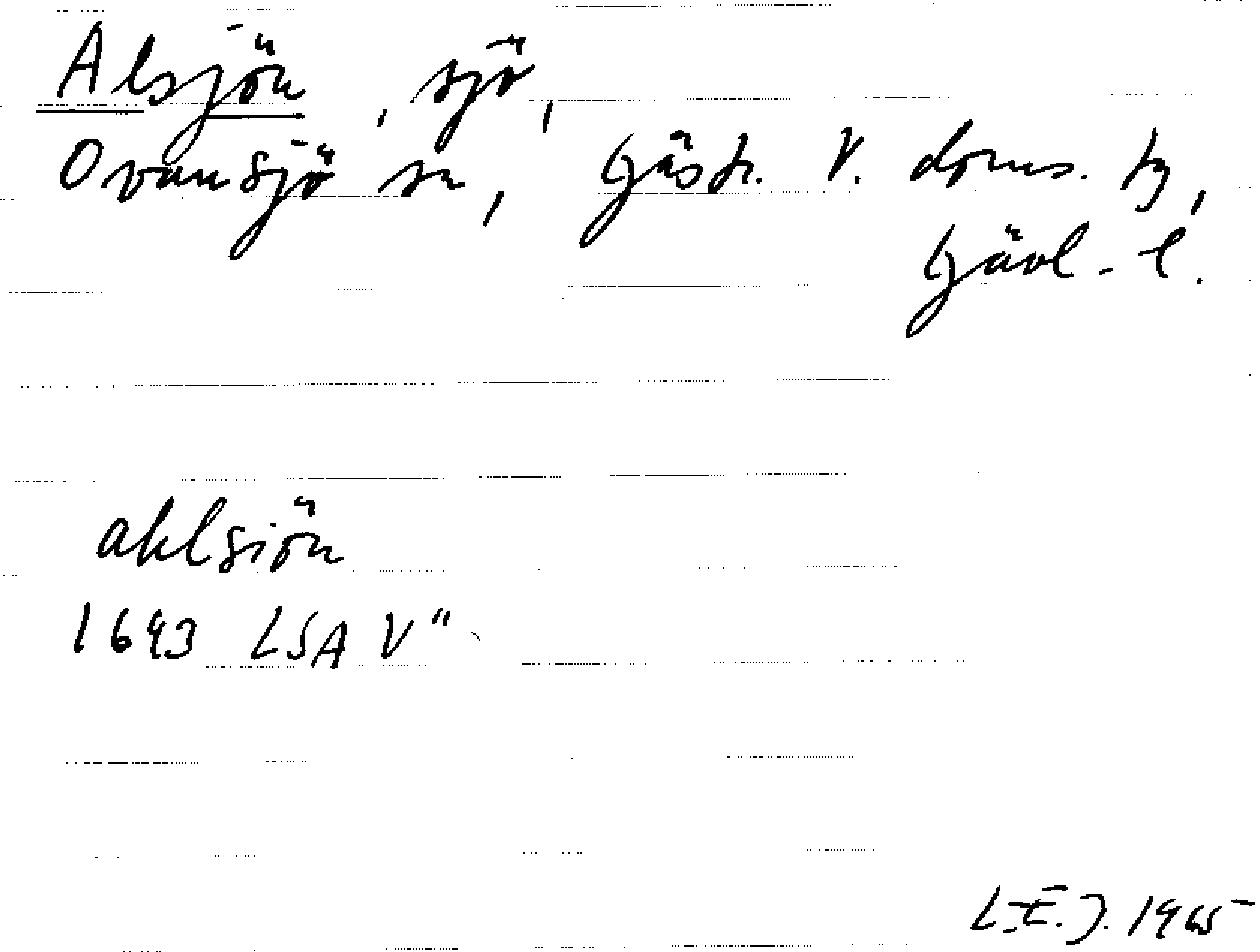 Alsjön, sjö,
Ovansjö sn, Gästr. V. doms. tg,
Gävl. l.
ahlsiön
1693 LSA V"
L.E.J. 1965